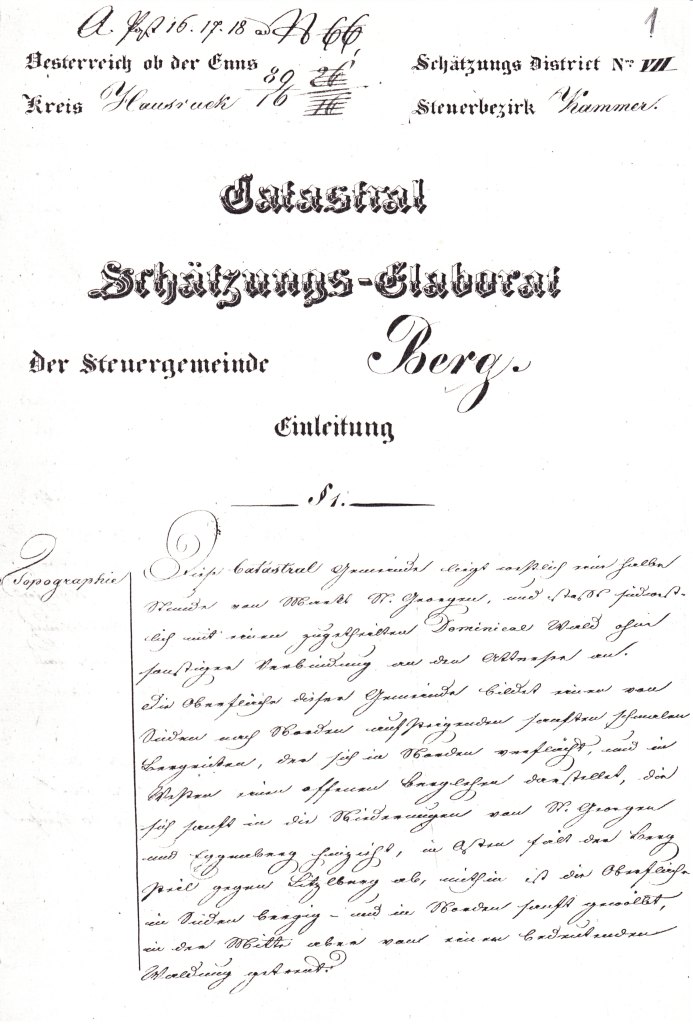 A. Post 16. 17. 18 ad N 66
1
Oesterreich ob der Enns 89 26
Schätzungs District Nro VII
Kreis Hausruck 16 16
Steuerbezirk Kammer.
Catastral
Schätzungs-Elaborat
der Steuergemeinde Berg.
Einleitung
§ 1.
Topographie
Diese Catastral Gemeinde liegt westlich eine halbe
Stunde von Markt St. Georgen, und stosst südwest-
lich mit einen zugetheilten Dominical Wald ohne
sonstiger Verbindung an den Attersee an.
Die Oberfläche dieser Gemeinde bildet einen von
Süden nach Norden aufsteigenden sanften schmalen
Bergrücken, der sich in Norden verflächt, und in
Westen einen offenen Berglehen darstellet, die
sich sanft in die Niederungen von St. Georgen
und Eggenberg hinzieht, in Osten fält der Berg
steil gegen Litzlberg ab, mithin ist die Oberfläche
im Süden bergig – und in Norden sanft gewölbt,
in der Mitte aber von einer bedeutenden
Waldung getrent.